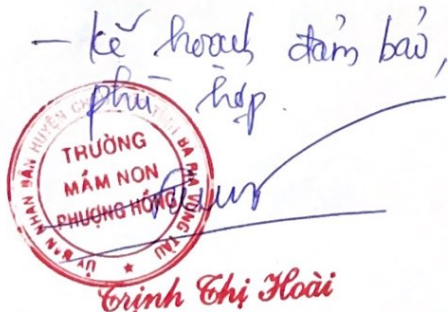 - kế hoạch đảm bảo,
phù hợp.
ỦY BAN NHÂN DÂN HUYỆN
TỈNH BÀ RỊA VŨNG TÀU
TRƯỜNG
MẦM NON
PHƯỢNG HỒNG
Trịnh Thị Hoài